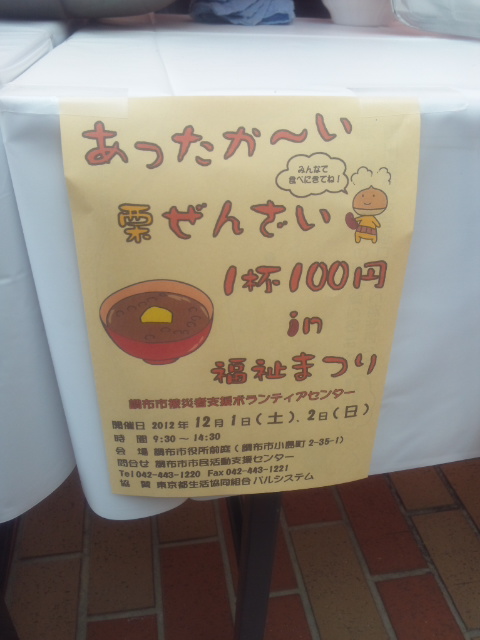 あったか～い
みんなで
食べにきてね!
栗ぜんざい
1杯100円
in
福祉まつり
調布市被災者支援ボランティアセンター
開催日 2012年 12月1日(土)、2日(日)
時 間 9:30～14:30
会 場 調布市役所前庭(調布市小島町2-35-1)
問合せ 調布市市民活動支援センター
Tel 042-443-1220 Fax 042-443-1221
協 賛 東京都生活協同組合パルシステム